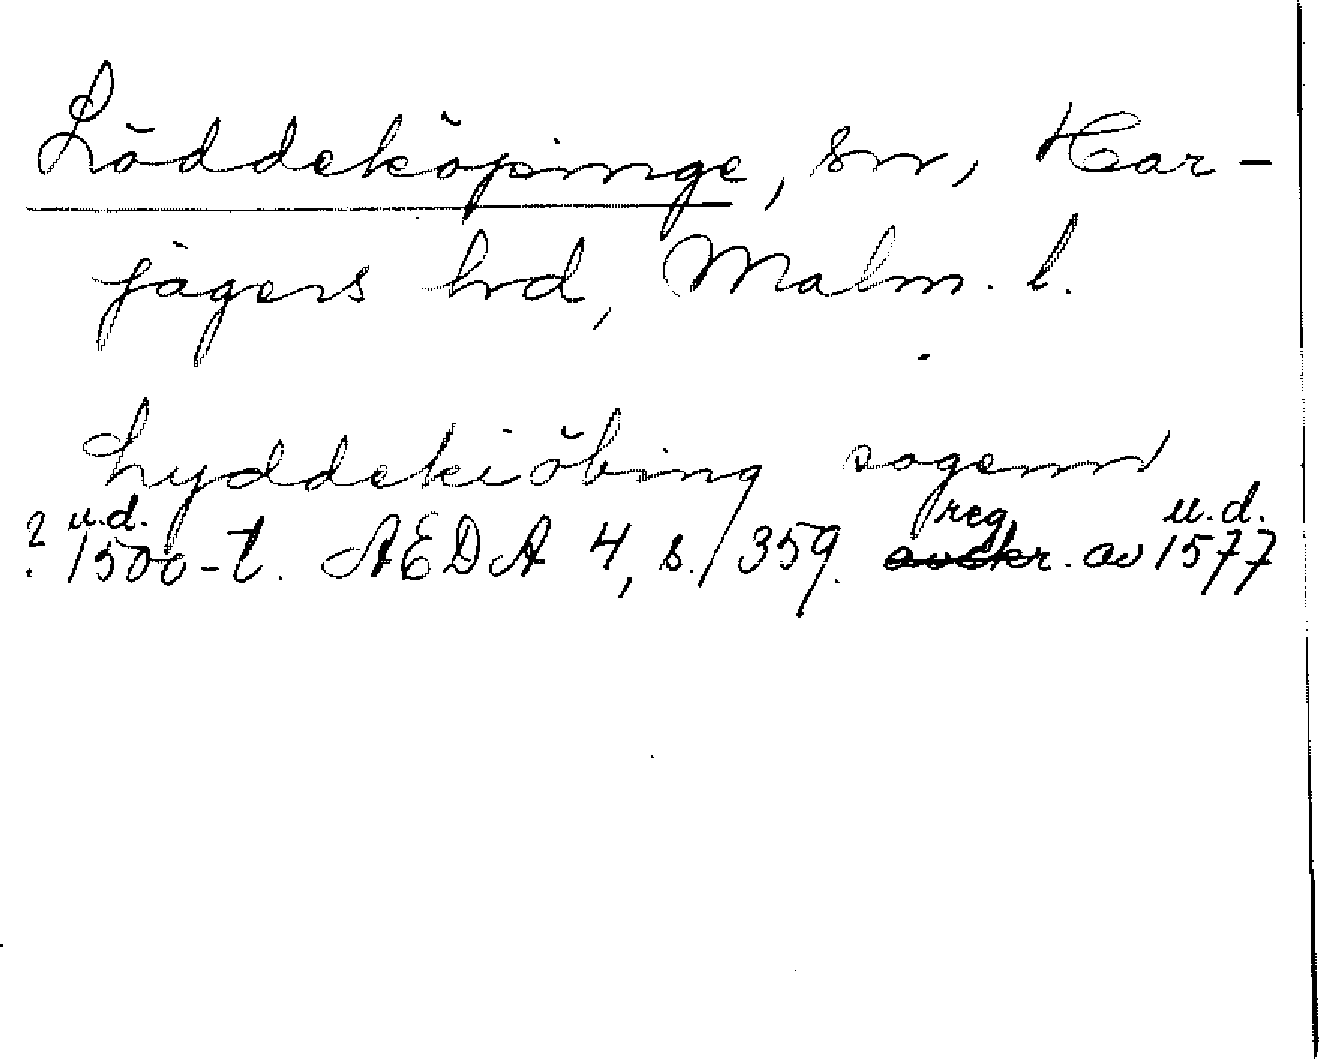 Löddeköpinge, sn, Har-
jagers hrd, Malm. l.
Lyddekiöbing sogenn
reg.
? u.d. 1500-t. AEDA 4, s. 359. avskr. av 1577 u.d.